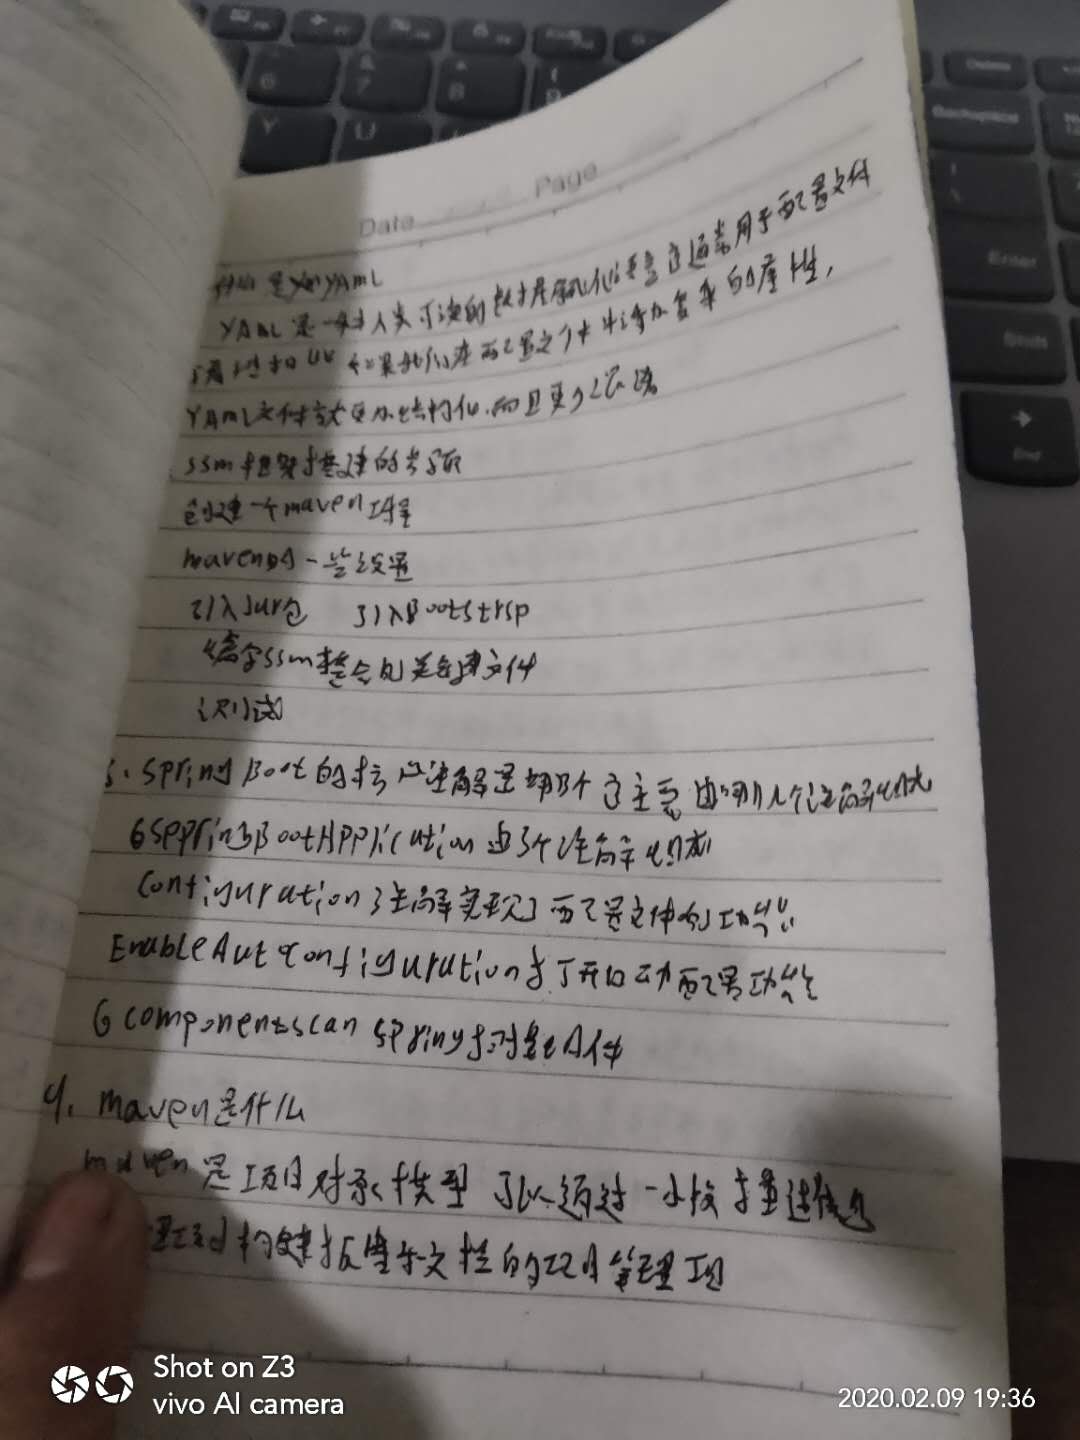 Date Page
什么是YAML
YAML是一种人类可读的数据序列化语言它通常用于配置文件
与属性文件相比如果我们在配置文件中添加复杂的属性,
YAML文件就更加结构化,而且更少混淆
ssm框架搭建的步骤
创建一个maven工程
maven的一些设置
引入Jar包 引入Bootstrsp
编写ssm整合的关键文件
测试
5. Spring Boot的核心注解是哪个它主要由哪几个注解组成
SppringBootApplication由3个注解组成
Configuration注解实现了配置文件的功能
EnableAutoConfiguration打开自动配置功能
componentscan spring扫描组件
4. maven是什么
maven是项目对象模型 可以通过一小段描述信息
管理项目构建报告和文档的项目管理
Shot on Z3
vivo AI camera
2020.02.09 19:36